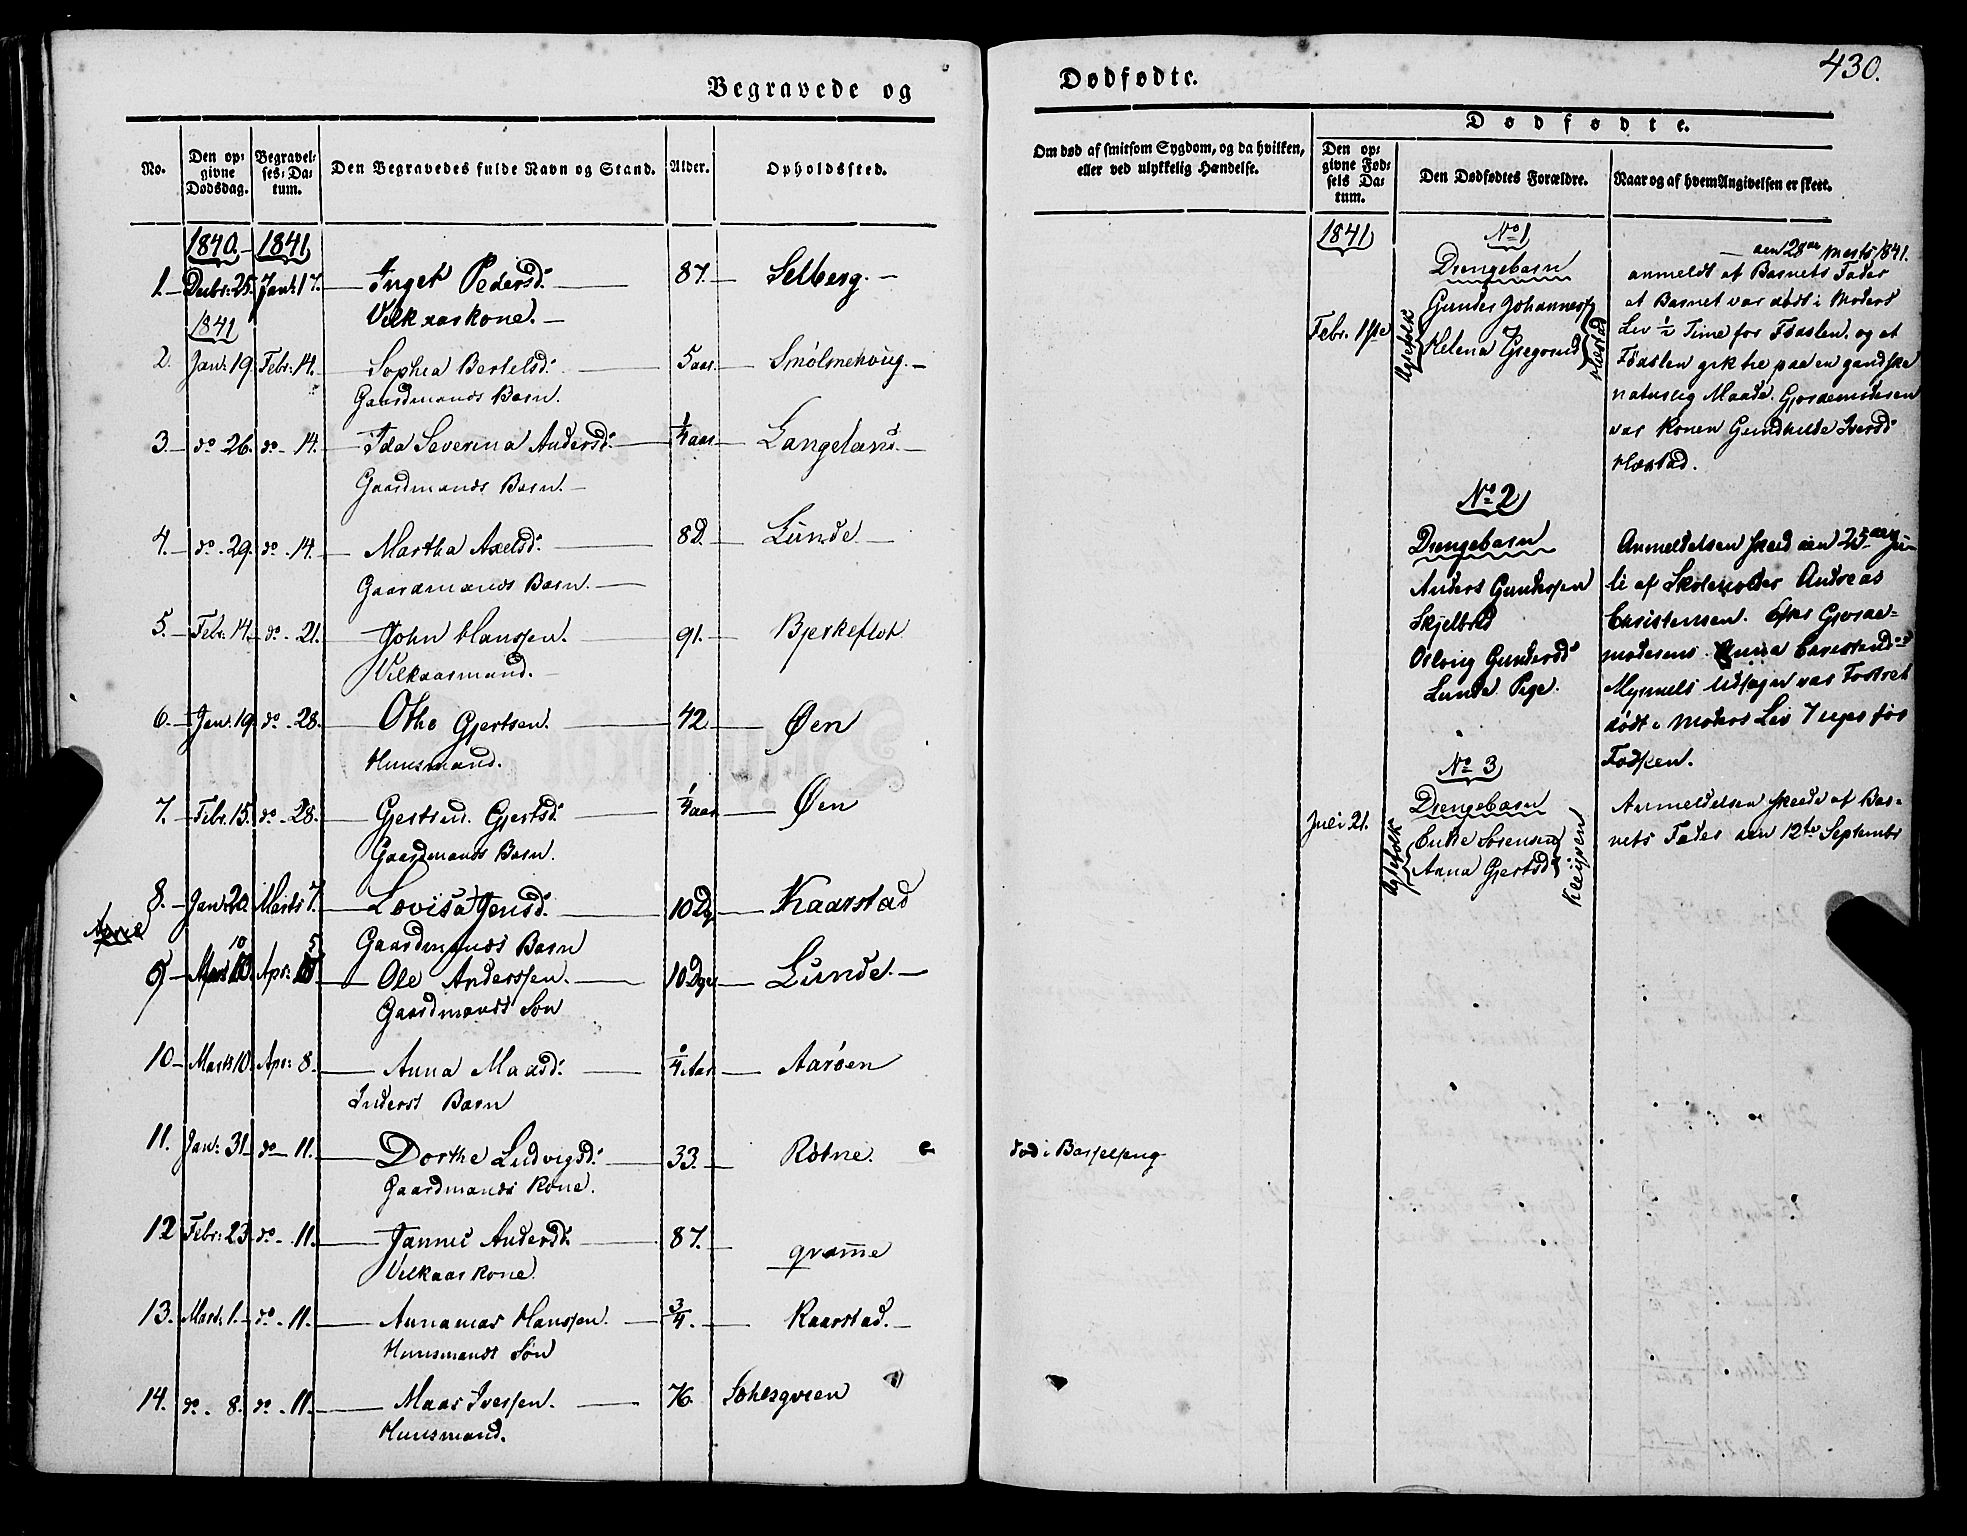 Begravede og
No.
Den opgivne Dødsdag.
Begravelses-Datum.
Den Begravedes fulde Navn og Stand.
Alder.
Opholdssted.
1840 1841
1. Decbr: 25. Jan: 17. Inger Pedersd: 87. Selberg.
Vilkaarskone.
1841
2. Jan: 19 Febr: 14. Sophia Bertelsd: 5 aar Smølmehoug.
Gaardmands Barn.
3. do 26. do 14. Ida Severina Andersd: 1/4 aar Langeland.
Gaardmands Barn.
4. do 29. do 14. Martha Axelsd: 8 D. Lunde
Gaardmands Barn.
5. Febr. 14. do 21. John Hanssen. 91. Bjerkeflot
Vilkaarsmand.
6. Jan: 19. do 28. Otho Gjertsen. 42 Øen
Huusmand.
7. Febr. 15. do 28. Gjertrud Gjertsd: 1/4 aar Øen
Gaardmands Barn.
8. Jan: 20. Marts 7. Lovisa Jensd: 10 Dg Kaarstad
Gaardmands Barn
9 10 Apr: 5 Ole Anderssen. 10 Dge Lunde.
Gaardmands Søn
10 Marts 10. Apr: 8. Anna Maasd: 1/4 Aar Aarøen
Inderst Barn
11. Jan: 31 do 11. Dorthe Ludvigsd: 33. Rotne.
Gaardmands Kone.
12 Febr: 23 do 11. Jannes Andersd: 87. gramme
Vilkaarskone.
13. Mart: 1. do 11. Annanias Hanssen. 3/4. Kaarstad.
Huusmands Søn
14. do 8. do 11. Maas Iverssen. 76. Sohesgreen
Huusmand.
Dødfødte.
430.
Om død af smitsom Sygdom, og da hvilken, eller ved ulykkelig Hændelse.
Dødfødte.
Den opgivne Fødsels Datum.
Den Dødfødtes Forældre.
Naar og af hvem Angivelsen er skeet.
død i Barselseng
1841
No 1
Drengebarn
Febr. 1ste
Ægtefolk
Gunder Johannes:
Helena Gregoriusd
den 28de Marts 1841.
anmeldt af Barnets Fader
at Barnet var dødt i Moders
Liv 1/2 Time før Fødslen. og at
Fødslen gik til paa en gandske
naturlig Maade. Gjordemoderen
var Konen Gundhilde Iversd:
No 2
Drengebarn
Anders Gundersen
Skjelbred
Oslvrig Gundersd:
Lunde Pige.
Anmeldelsen skeed den 25de Ju-
li af Skoleholder Andreas
Christensen. Efter Gjorde-
moderens Anna Carstensd:
Myrmels Udsagn var Fosteret
dødt i Moders Liv 7 Uger før
Fødslen.
No 3
Drengebarn
Juli 21.
Ægtefolk
Enke Sørensen
Anna Gjertsd:
Kleiven
Anmeldelsen skeede af Bar-
nets Fader den 12te Septembr